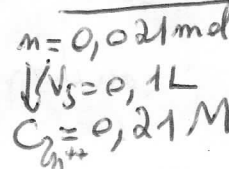 n = 0,021 mol
↓ Vs = 0,1 L
C Zn++ = 0,21 M